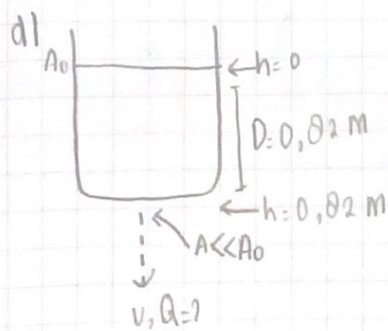 d)
A₀
←h=0
D=0,82 m
←h=0,82 m
A<<A₀
v, Q=?